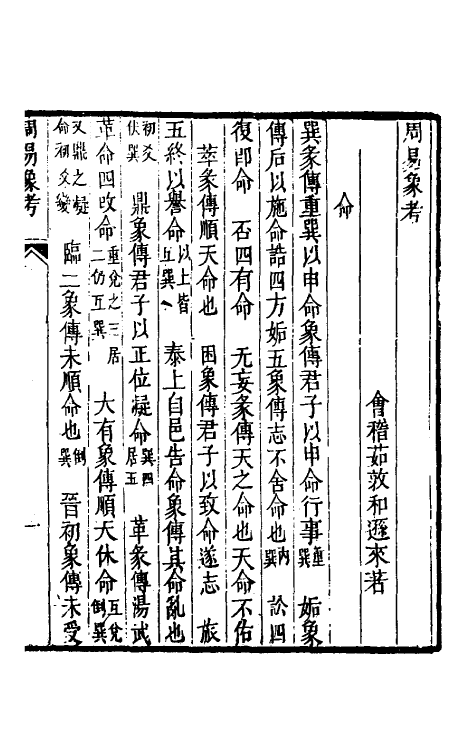 周易象考
會稽茹敦和遜來著
命
巽彖傳重巽以申命象傳君子以申命行事重巽　姤象
傳后以施命誥四方姤五象傳志不舍命也內巽　訟四
復卽命　否四有命　无妄彖傳天之命也天命不佑
萃彖傳順天命也　困象傳君子以致命遂志　旅
五終以譽命以上皆互巽　泰上自邑告命象傳其命亂也
初爻伏巽　鼎象傳君子以正位凝命巽四居五　革彖傳湯武
革命四改命重兌之三居二仍互巽　大有象傳順天休命互兌倒巽
又鼎之凝命初爻變　臨二象傳未順命也倒巽　晉初象傳未受
周易象考
一